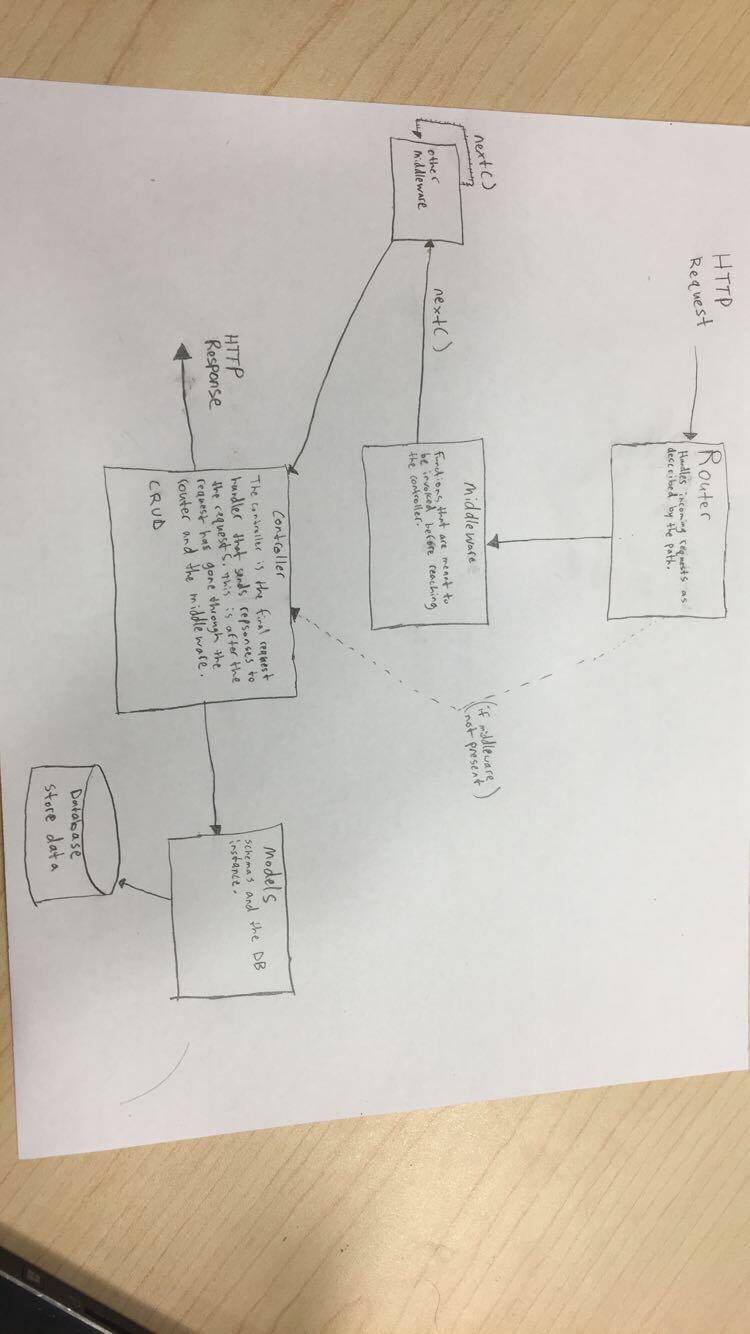 HTTP
Request
Router
Handles incoming requests as
described by the path.
(if middleware
not present)
next()
other
middleware
next()
Middleware
Functions that are meant to
be invoked before reaching
the controller.
Controller
The controller is the final request
handler that sends repsonses to
the requests. This is after the
request has gone through the
router and the middleware.
CRUD
HTTP
Response
Models
schemas and the DB
instance.
Database
store data